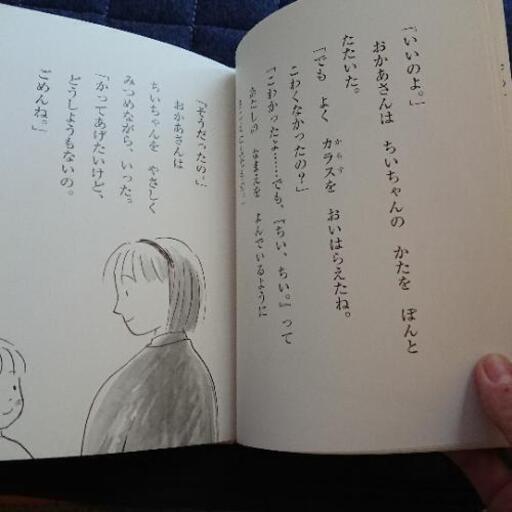 「いいのよ。」
おかあさんは ちいちゃんの かたを ぽんと
たたいた。
「でも よく カラスを おいはらえたね。
からす
こわくなかったの?」
「こわかったよ……でも、『ちい、ちい。』って
あたしの なまえを よんでいるように
「そうだったの。」
おかあさんは
ちいちゃんを やさしく
みつめながら、いった。
「かってあげたいけど、
どうしようもないの。
ごめんね。」